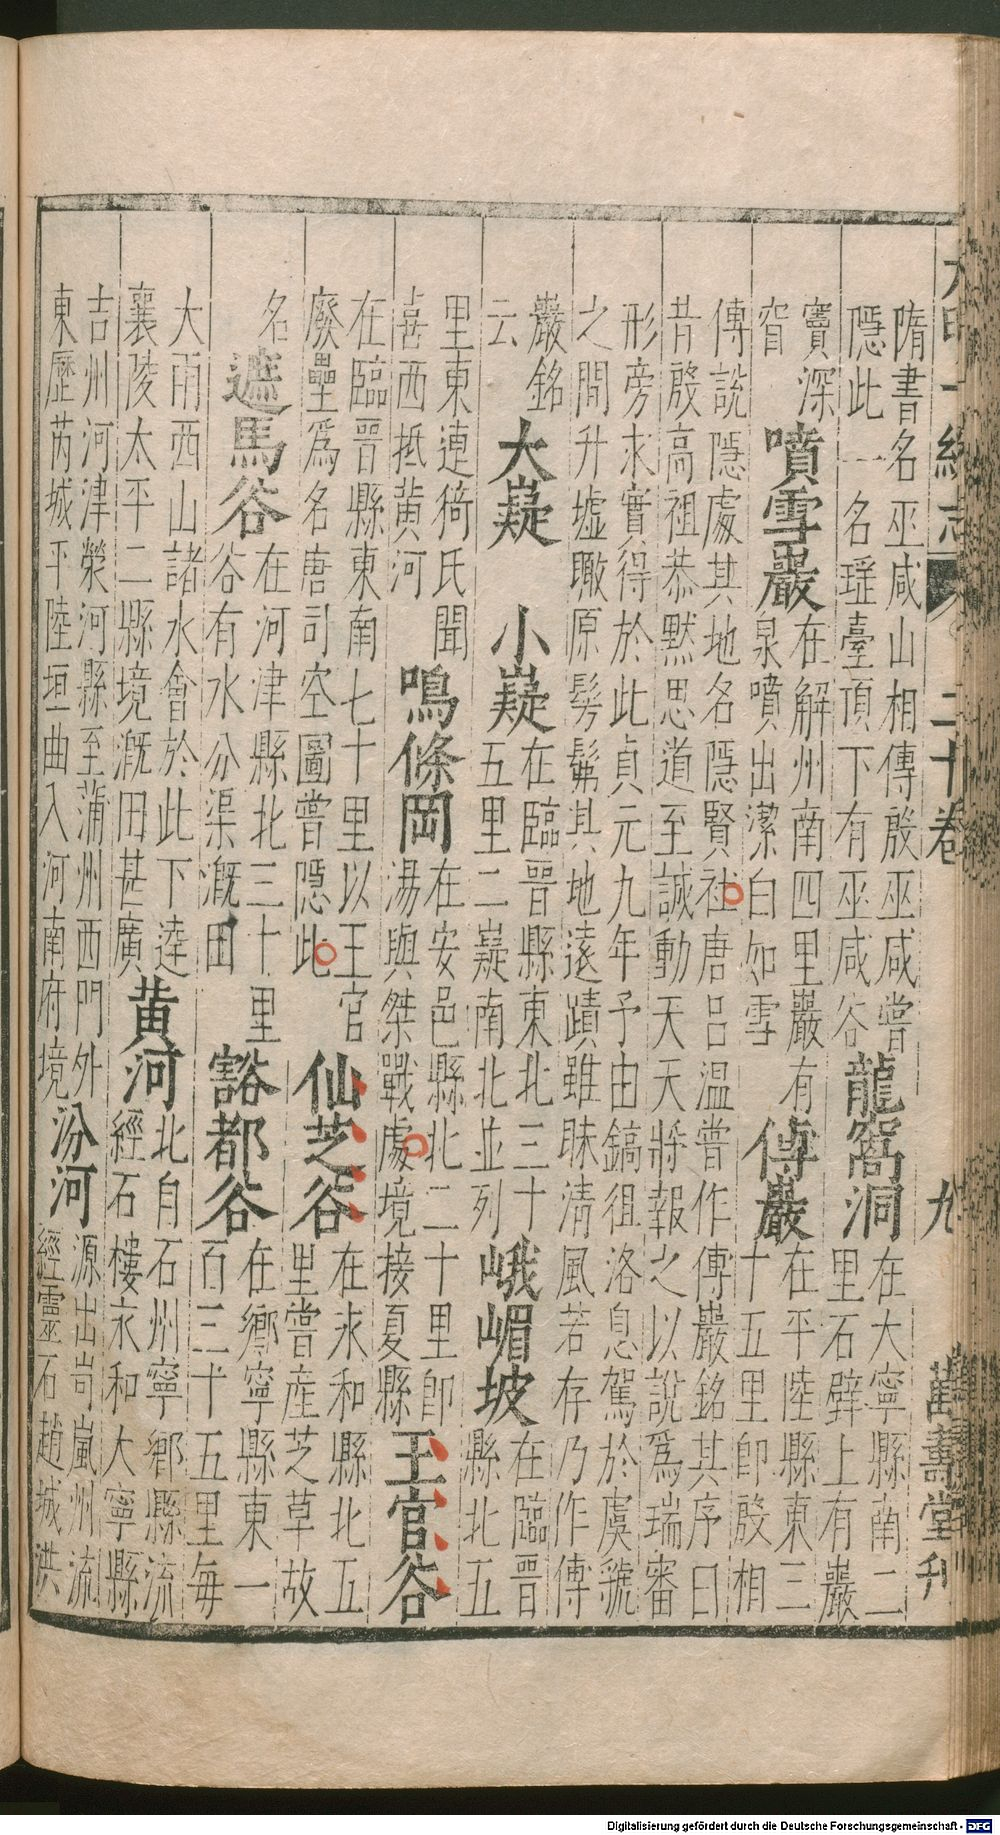 大明一統志 二十卷 九 萬壽堂刊
隋書名巫咸山相傳殷巫咸嘗
隱此一名瑶臺頂下有巫咸谷
龍窩洞
在大寧縣南二
里石壁上有巖
竇深
窅
噴雪巖
在解州南四里巖有
泉噴出潔白如雪
傅巖
在平陸縣東三
十五里即殷相
傅說隱處其地名隱賢社唐呂温嘗作傅巖銘其序曰
昔殷高祖恭默思道至誠動天天將報之以說爲瑞審
形旁求實得於此貞元九年予由鎬徂洛息駕於虞虢
之間升墟瞰原髣髴其地遠蹟雖昧清風若存乃作傅
巖銘
云
大嶷 小嶷
在臨晉縣東北三十
五里二嶷南北並列
峨嵋坡
在臨晉
縣北五
里東連猗氏聞
喜西抵黄河
鳴條岡
在安邑縣北二十里即
湯與桀戰處境接夏縣
王官谷
在臨晉縣東南七十里以王官
廢壘爲名唐司空圖嘗隱此
仙芝谷
在永和縣北五
里嘗産芝草故
名
遮馬谷
在河津縣北三十里
谷有水分渠溉田
豁都谷
在鄉寧縣東一
百三十五里每
大雨西山諸水會於此下逵
襄陵太平二縣境溉田甚廣
黄河
北自石州寧鄉縣流
經石樓永和大寧縣
吉州河津滎河縣至蒲州西門外
東歷芮城平陸垣曲入河南府境
汾河
源出岢嵐州流
經靈石趙城洪
Digitalisierung gefördert durch die Deutsche Forschungsgemeinschaft - DFG